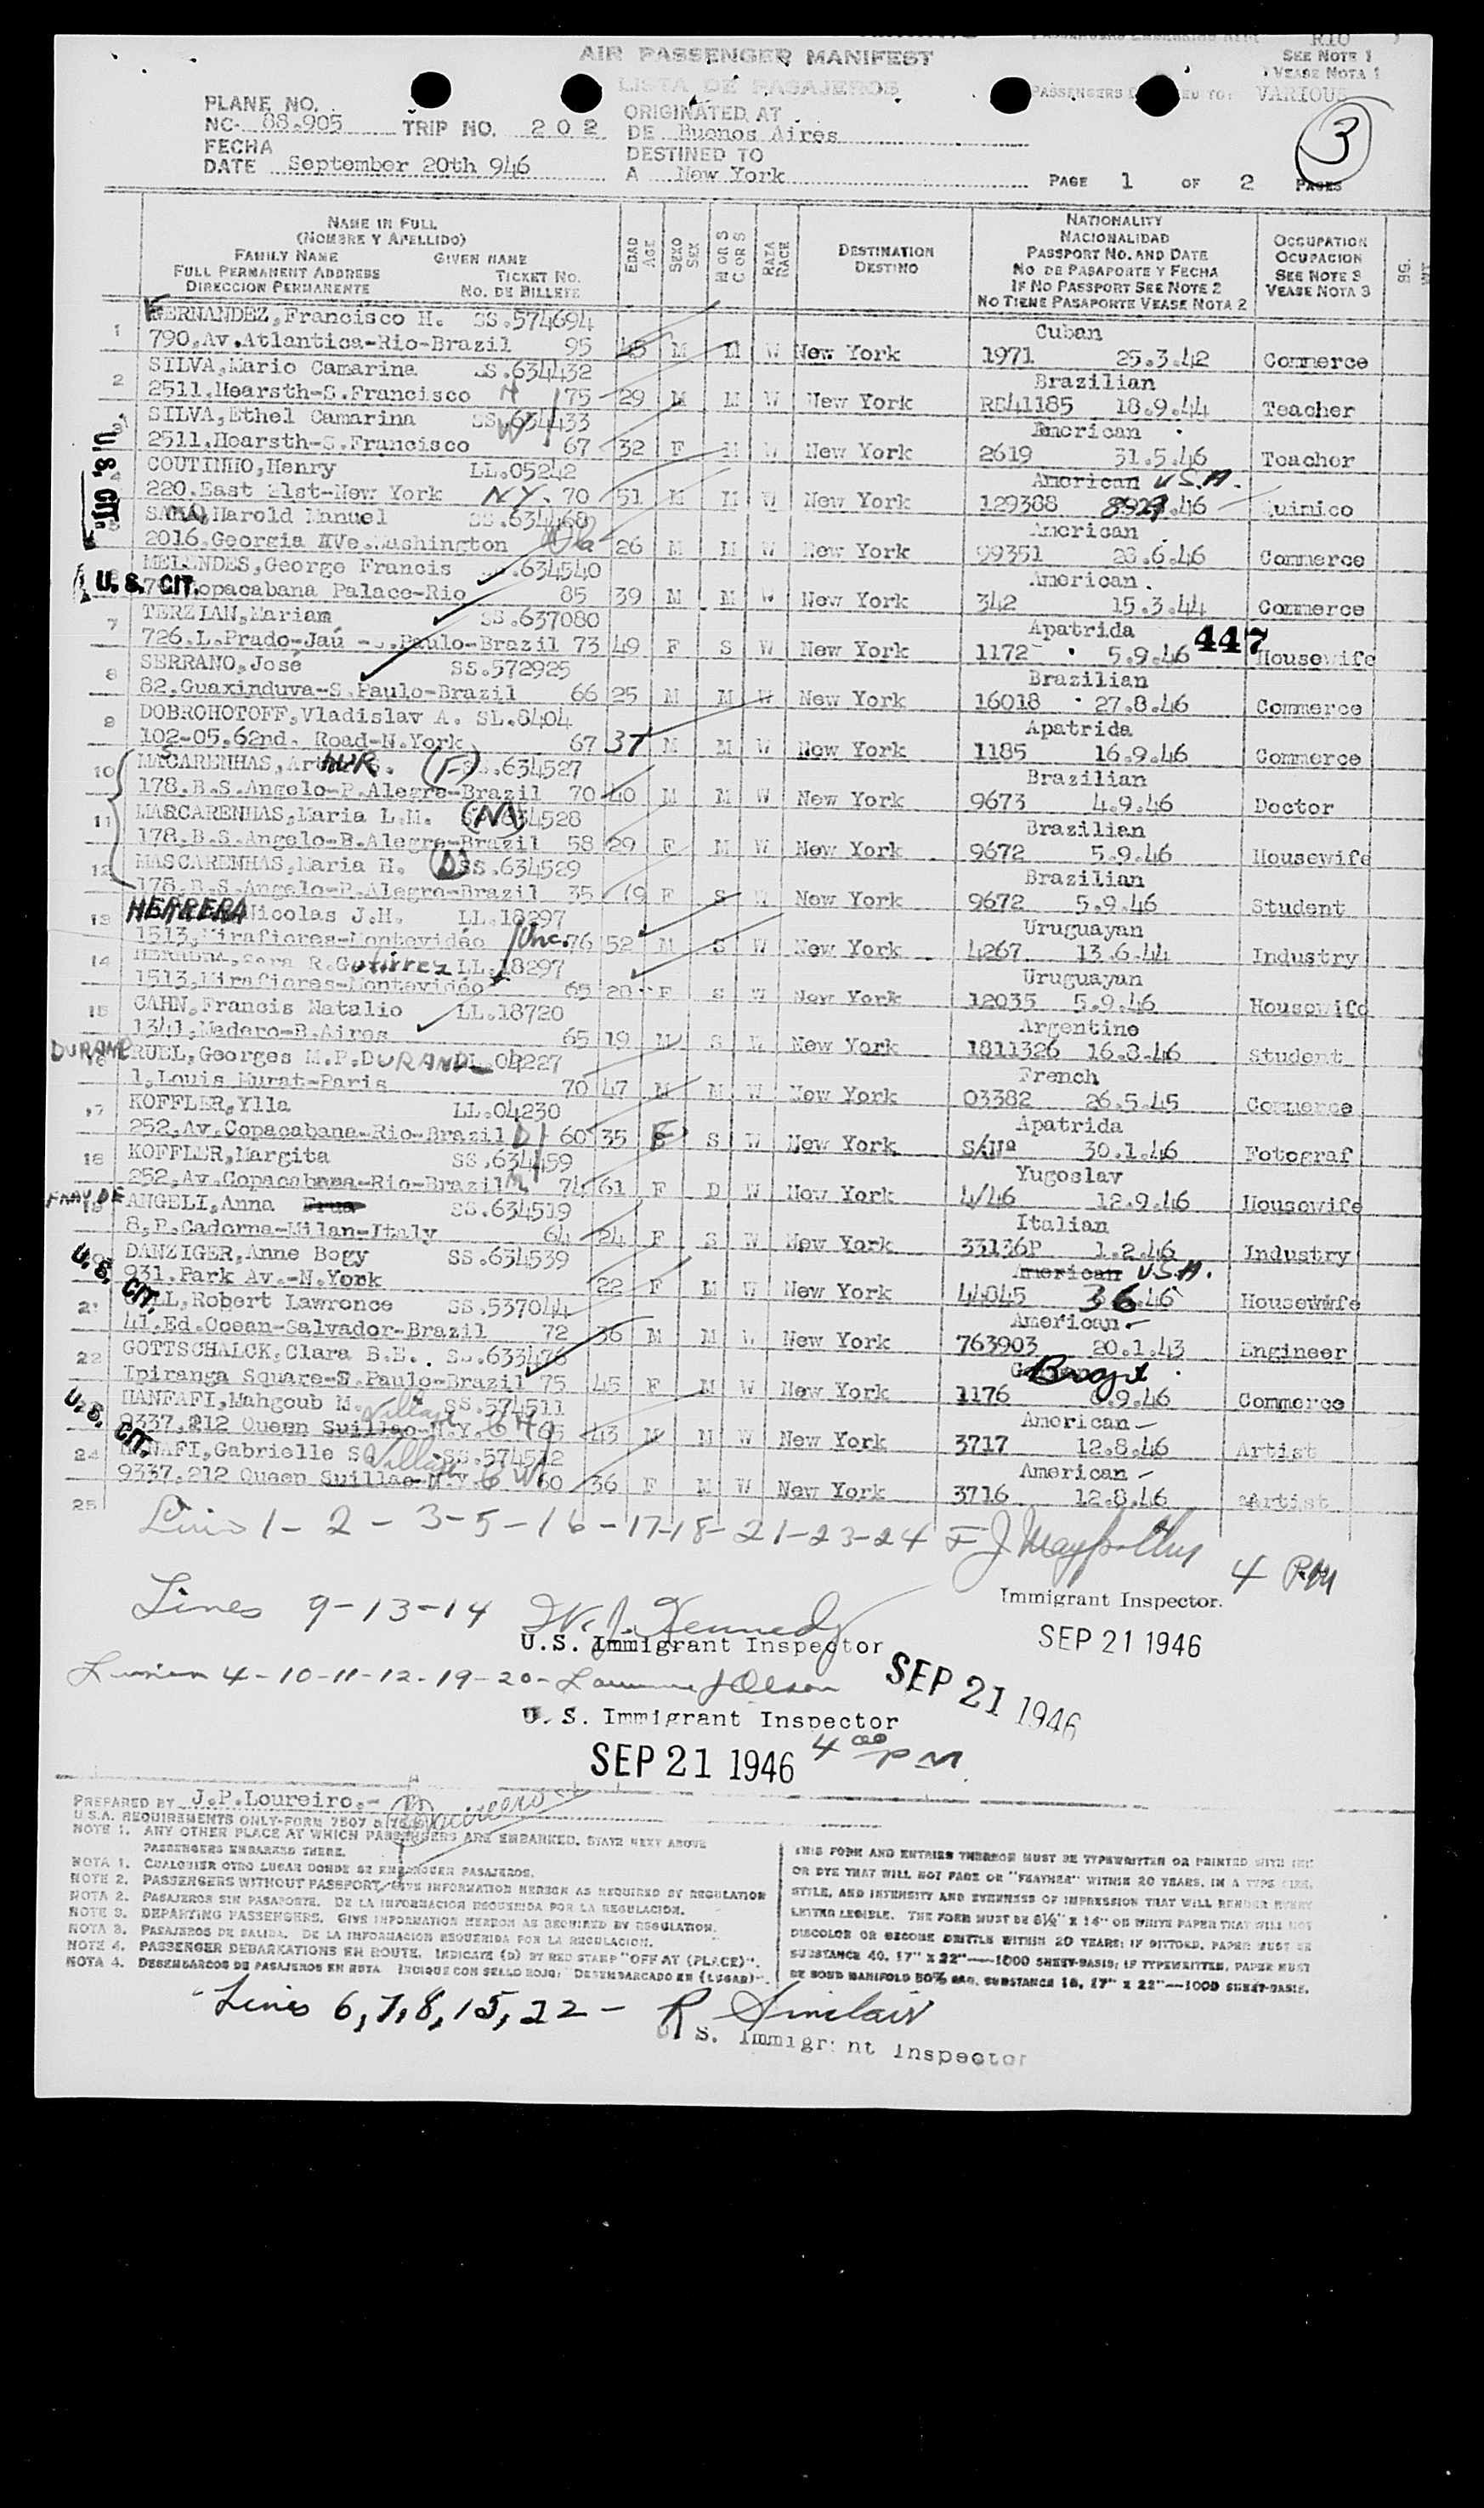 AIR PASSENGER MANIFEST
LISTA DE PASAJEROS
RIO
SEE NOTE 1
VEASE NOTA 1
VARIOUS
3
PLANE NO.
NC- 88.905 TRIP NO. 202
FECHA
DATE September 20th 946
ORIGINATED AT
DE Buenos Aires
DESTINED TO
A New York
PAGE 1 OF 2 PAGES
NAME IN FULL
(NOMBRE Y APELLIDO)
FAMILY NAME GIVEN NAME
FULL PERMANENT ADDRESS TICKET NO.
DIRECCION PERMANENTE NO. DE BILLETE
EDAD AGE
SEXO SEX
M OR S C OR S
RAZA RACE
DESTINATION
DESTINO
NATIONALITY
NACIONALIDAD
PASSPORT NO. AND DATE
NO DE PASAPORTE Y FECHA
IF NO PASSPORT SEE NOTE 2
NO TIENE PASAPORTE VEASE NOTA 2
OCCUPATION
OCUPACION
SEE NOTE 3
VEASE NOTA 3
1 FERNANDEZ,Francisco H. SS.574694 Cuban
790.Av.Atlantica-Rio-Brazil 95 45 M M W New York 1971 25.3.42 Commerce
2 SILVA,Mario Camarina SS.634432 Brazilian
2511.Hearsth-S.Francisco H 75 29 M M W New York RE41185 18.9.44 Teacher
SILVA,Ethel Camarina SS.634433 American
2511.Hearsth-S.Francisco W 67 32 F M W New York 2619 31.5.46 Teacher
U.S. CIT.
COUTINHO,Henry LL.05242 American U.S.A.
220.East 21st-New York N.Y. 70 51 M M W New York 129388 .46 Quimico
Harold Manuel SS.634468 American
2016.Georgia AVe.Washington 26 M M W New York 99351 28.6.46 Commerce
MELENDES,George Francis SS.634540 American
U.S. CIT. Copacabana Palace-Rio 85 39 M M W New York 342 15.3.44 Commerce
7 TERZIAN,Mariam SS.637080 Apatrida
726.L.Prado-Jaú -S.Paulo-Brazil 73 49 F S W New York 1172 5.9.46 447 Housewife
8 SERRANO,José SS.572925 Brazilian
82.Guaxinduva-S.Paulo-Brazil 66 25 M M W New York 16018 27.8.46 Commerce
9 DOBROHOTOFF,Vladislav A. SL.8404 Apatrida
102-05.62nd. Road-N.York 67 37 M M W New York 1185 16.9.46 Commerce
10 MASCARENHAS, (F) SS.634527 Brazilian
178.B.S.Angelo-P.Alegre-Brazil 70 40 M M W New York 9673 4.9.46 Doctor
11 MASCARENHAS,Maria L.M. (M) 634528 Brazilian
178.B.S.Angelo-B.Alegre-Brazil 58 29 F M W New York 9672 5.9.46 Housewife
12 MASCARENHAS,Maria H. (D) SS.634529 Brazilian
178.B.S.Angelo-P.Alegre-Brazil 35 19 F S W New York 9672 5.9.46 Student
13 HERRERA Nicolas J.H. LL.18297 Uruguayan
1513,Mirafiores-Montevidéo Unc. 76 52 M S W New York 4267 13.6.44 Industry
14 HERRERA,Sara R.Gutirrez LL.18297 Uruguayan
1513,Mirafiores-Montevidéo 65 28 F S W New York 12035 5.9.46 Housewife
15 CAHN,Francis Natalio LL.18720 Argentine
1341,Madero-B.Aires 65 19 M S W New York 1811326 16.8.46 Student
DURAND 16 RUEL,Georges M.P.DURAND LL.04227 French
1,Louis Murat-Paris 70 47 M M W New York 03382 26.5.45 Commerce
17 KOFFLER,Ylla LL.04230 Apatrida
252,Av.Copacabana-Rio-Brazil D 60 35 F S W New York S/Nº 30.1.46 Fotograf
18 KOFFLER,Margita SS.634459 Yugoslav
252,Av.Copacabana-Rio-Brazil M 74 61 F D W New York 4/46 12.9.46 Housewife
ANGELI,Anna Frua SS.634519 Italian
8,P.Cadorna-Milan-Italy 64 24 F S W New York 33136P 1.2.46 Industry
U.S. CIT.
DANZIGER,Anne Bogy SS.634539 American U.S.A.
931.Park Av.-N.York 22 F M W New York 44045 3 6.46 Housewife
21 Robert Lawrence SS.537044 American
41.Ed.Ocean-Salvador-Brazil 72 36 M M W New York 763903 20.1.43 Engineer
22 GOTTSCHALCK,Clara B.E. SS.633476
Ipiranga Square-S Paulo-Brazil 75 45 F M W New York 1176 .9.46 Commerce
U.S. CIT.
HANFAFI,Mahgoub M. SS.574511 American
9337.212 Queen Suillac-N.Y. Village H 65 43 M M W New York 3717 12.8.46 Artist
24 Gabrielle S SS.574512 American
9337.212 Queen Suillac-N.Y. Village W 60 36 F M W New York 3716 12.8.46 Artist
25
Lines 1-2-3-5-16-17-18-21-23-24 4 PM
Immigrant Inspector.
SEP 21 1946
Lines 9-13-14 W.J. Kennedy
U.S. Immigrant Inspector
SEP 21 1946
4-10-11-12-19-20- Olson
U. S. Immigrant Inspector
SEP 21 1946 4 00 PM
PREPARED BY J.P.Loureiro.-
U.S.A. REQUIREMENTS ONLY-FORM 7507
NOTE 1. ANY OTHER PLACE AT WHICH PASSENGERS ARE EMBARKED. STATE NEXT ABOVE
PASSENGERS EMBARKED THERE.
NOTA 1. CUALQUIER OTRO LUGAR DONDE SE EMBARQUEN PASAJEROS.
NOTE 2. PASSENGERS WITHOUT PASSPORT, GIVE INFORMATION HEREON AS REQUIRED BY REGULATION
NOTA 2. PASAJEROS SIN PASAPORTE. DE LA INFORMACION REQUERIDA POR LA REGULACION.
NOTE 3. DEPARTING PASSENGERS. GIVE INFORMATION HEREON AS REQUIRED BY REGULATION.
NOTA 3. PASAJEROS DE SALIDA. DE LA INFORMACION REQUERIDA POR LA REGULACION.
NOTE 4. PASSENGER DEBARKATIONS EN ROUTE. INDICATE (D) BY RED STAMP "OFF AT (PLACE)".
NOTA 4. DESEMBARCOS DE PASAJEROS EN RUTA INDIQUE CON SELLO ROJO: DESEMBARCADO EN (LUGAR)".
THIS FORM AND ENTRIES THEREON MUST BE TYPEWRITTEN OR PRINTED WITH INK
OR DYE THAT WILL NOT FADE OR "FEATHER" WITHIN 20 YEARS, IN A TYPE SIZE,
STYLE, AND INTENSITY AND EVENNESS OF IMPRESSION THAT WILL RENDER EVERY
LETTER LEGIBLE. THE FORM MUST BE 8½" X 14" ON WHITE PAPER THAT WILL NOT
DISCOLOR OR BECOME BRITTLE WITHIN 20 YEARS; IF DITTOED, PAPER MUST BE
SUBSTANCE 40, 17" X 22"—1000 SHEET-BASIS; IF TYPEWRITTEN, PAPER MUST
BE BOND MANIFOLD 50% RAG, SUBSTANCE 16, 17" X 22"—1000 SHEET-BASIS.
Lines 6,7,8,15,22 - R Sinclair
U S. Immigrant Inspector